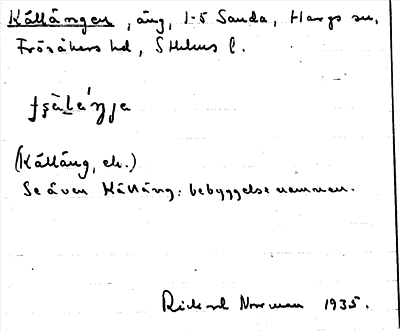 Källängen, äng, 1-5 Sanda, Hargs sn,
Frösåkers hd, Sthlms l.
(Källäng, ek.)
Se även Källäng: bebyggelsenamnen.
Rickard Norrman 1935.